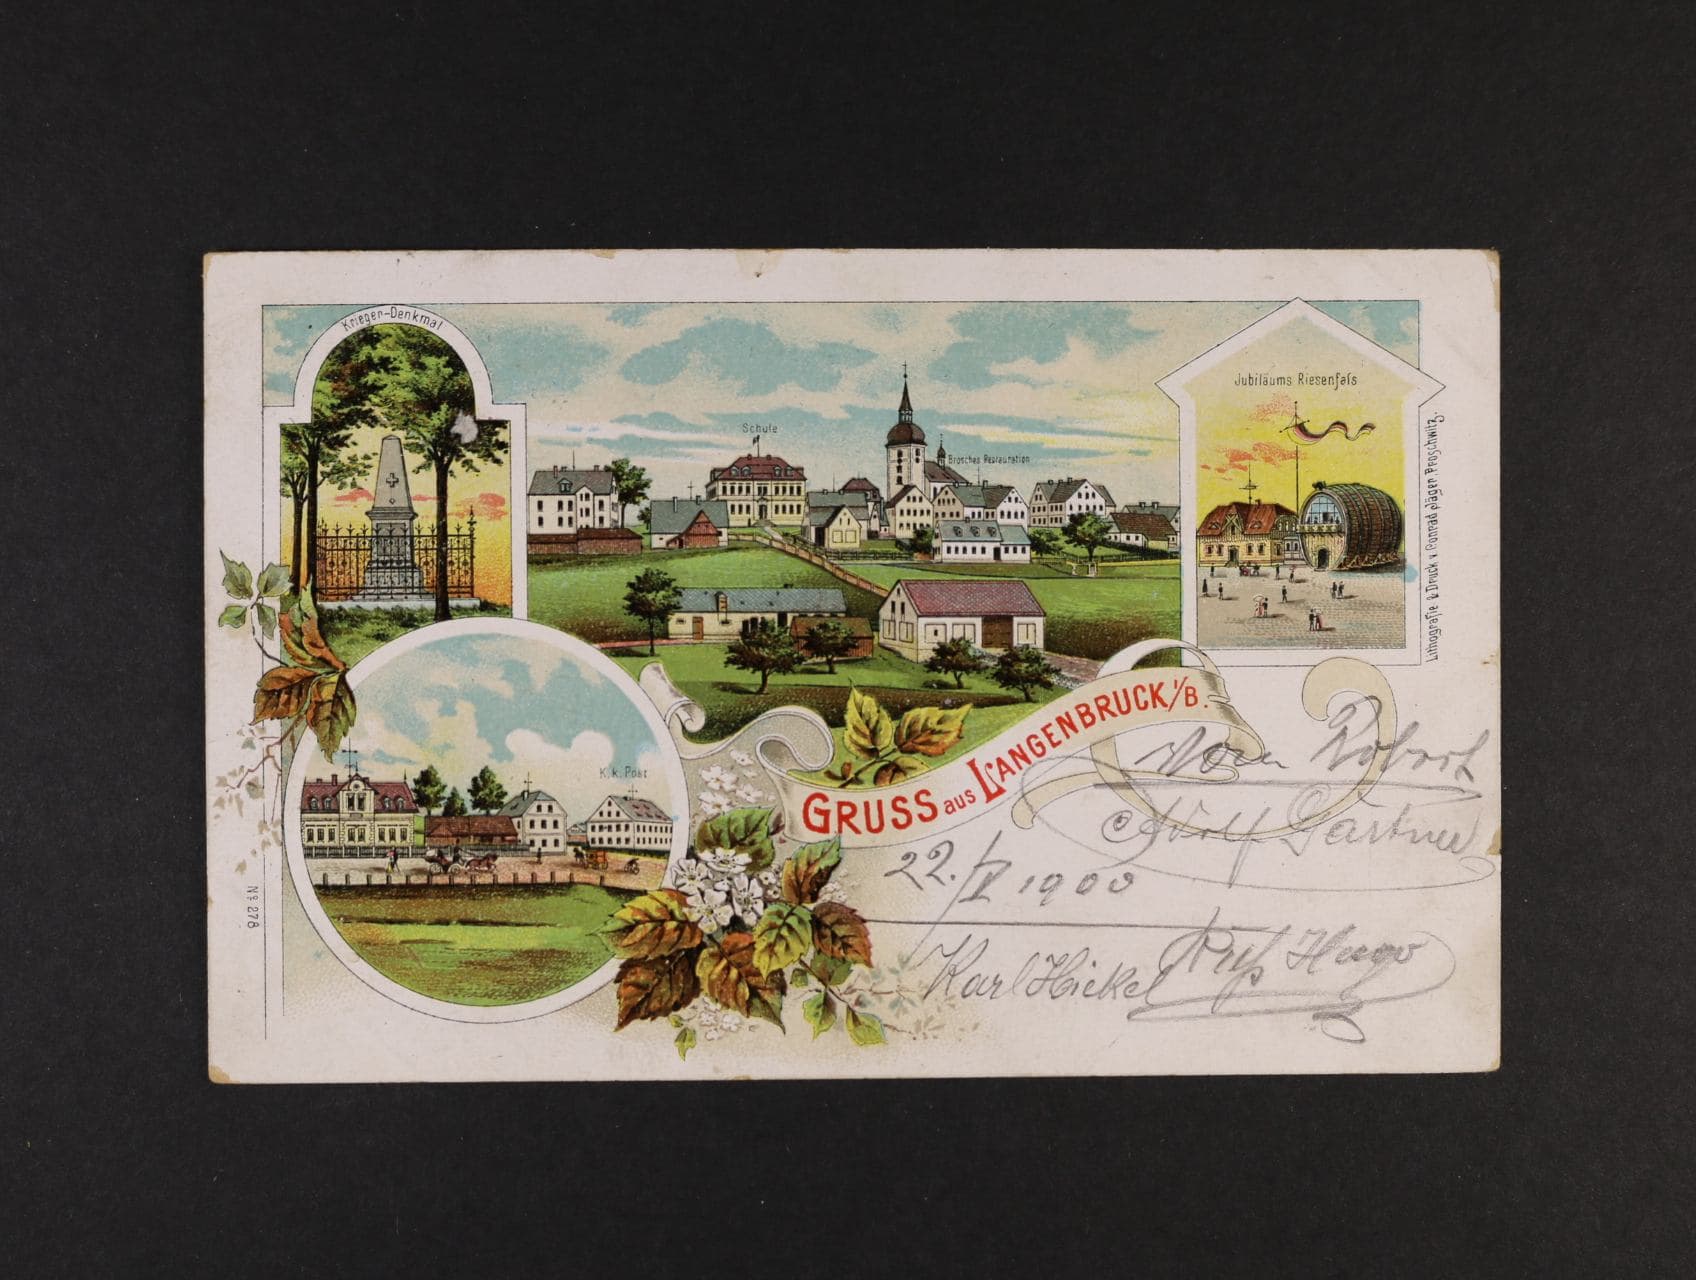 Krieger-Denkmal
Schule
Brosches Restauration
Jubiläums Riesenfaſs
Lithografie & Druck v. Conrad Jäger, Proschwitz.
K. k. Post
GRUSS aus LANGENBRUCK i/B.
Nº 278
Robert
Adolf Gärtner
22./V 1900
Karl Hickel
Hugo